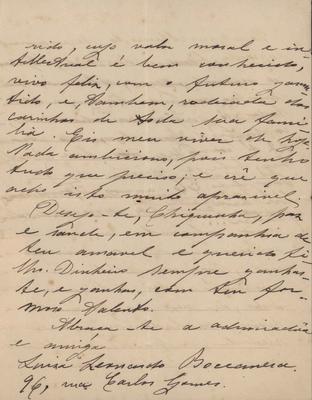 rido, cujo valor moral e in-
tellectual é bem conhecido,
vivo feliz, com o futuro garan-
tido, e, tambem, rodeiada dos
carinhos de toda sua fami-
lia. Eis meu viver de hoje.
Nada ambiciono, pois tenho
tudo que preciso; e crê que
acho isto muito aprasivel.
Desejo-te, Chiquinha, paz
e saude, em companhia de
teu amavel e querido fi-
lho. Dinheiro sempre ganhas-
te, e ganhas, com teu for-
moso talento.
Abraça-te a admiradora
e amiga
Luisa Leonardo Boccanera.
96, rua Carlos Gomes.